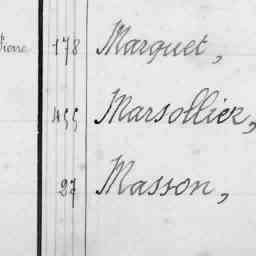 Pierre 178 Marquet,
455 Marsollier,
27 Masson,